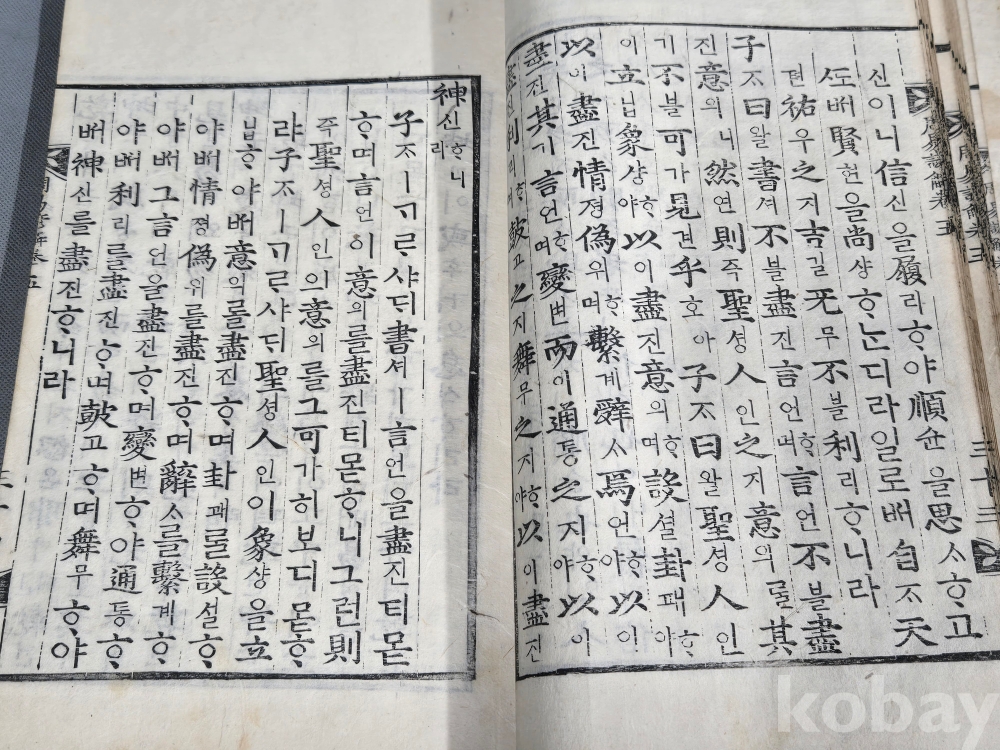 周易諺解卷五
三十三
신이니信신을履리ᄒᆞ야順슌을思ᄉᆞᄒᆞ고
ᄯᅩᄡᅥ賢현을尙샹ᄒᆞᄂᆞᆫ디라일로ᄡᅥ自ᄌᆞ天
텬祐우之지吉길无무不불利리ᄒᆞ니라
子ᄌᆞ曰왈書셔不불盡진言언ᄒᆞ며言언不불盡
진意의니然연則즉聖셩人인之지意의를其
기不불可가見견乎호아子ᄌᆞ曰왈聖셩人인
이立닙象샹ᄒᆞ야以이盡진意의ᄒᆞ며設셜卦괘ᄒᆞ야
以이盡진情졍偽위ᄒᆞ며繫계辭ᄉᆞ焉언ᄒᆞ야以이
盡진其기言언ᄒᆞ며變변而이通통之지ᄒᆞ야以이
盡진利리ᄒᆞ며鼓고之지舞무之지ᄒᆞ야以이盡진
神신ᄒᆞ니라
子ᄌᆞㅣᄀᆞᄅᆞ샤ᄃᆡ書셔ㅣ言언을盡진티몯
ᄒᆞ며言언이意의를盡진티몯ᄒᆞ니그런則
즉聖셩人인의意의를그可가히보디몯ᄒᆞ
랴子ᄌᆞㅣᄀᆞᄅᆞ샤ᄃᆡ聖셩人인이象샹을立
닙ᄒᆞ야ᄡᅥ意의를盡진ᄒᆞ며卦괘를設셜ᄒᆞ
야ᄡᅥ情졍偽위를盡진ᄒᆞ며辭ᄉᆞ를繫계ᄒᆞ
야ᄡᅥ그言언을盡진ᄒᆞ며變변ᄒᆞ야通통ᄒᆞ
야ᄡᅥ利리를盡진ᄒᆞ며鼓고ᄒᆞ며舞무ᄒᆞ야
ᄡᅥ神신를盡진ᄒᆞ니라
周易諺解卷五
kobay